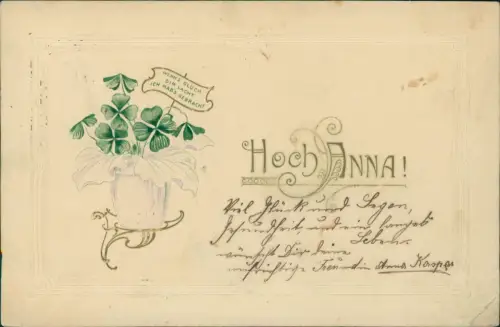 WENN'S GLÜCK
DIR LACHT
ICH HAB'S GEBRACHT
HOCH ANNA!
Viel Glück und Segen,
Gesundheit und ein langes
Leben
wünscht Dir deine
aufrichtige Freundin Anna Kasper